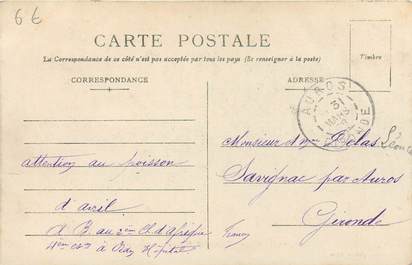 6 €
CARTE POSTALE
La Correspondance de ce côté n'est pas acceptée par tous les pays (Se renseigner à la poste)
Timbre
CORRESPONDANCE
ADRESSE
AUROS
31
MARS
GIRONDE
attention au poisson
d'avril
A B au 2me Ch d'Afrique
à Hopital
Monsieur et Mme Delas
Savignac par Auros
Gironde
France